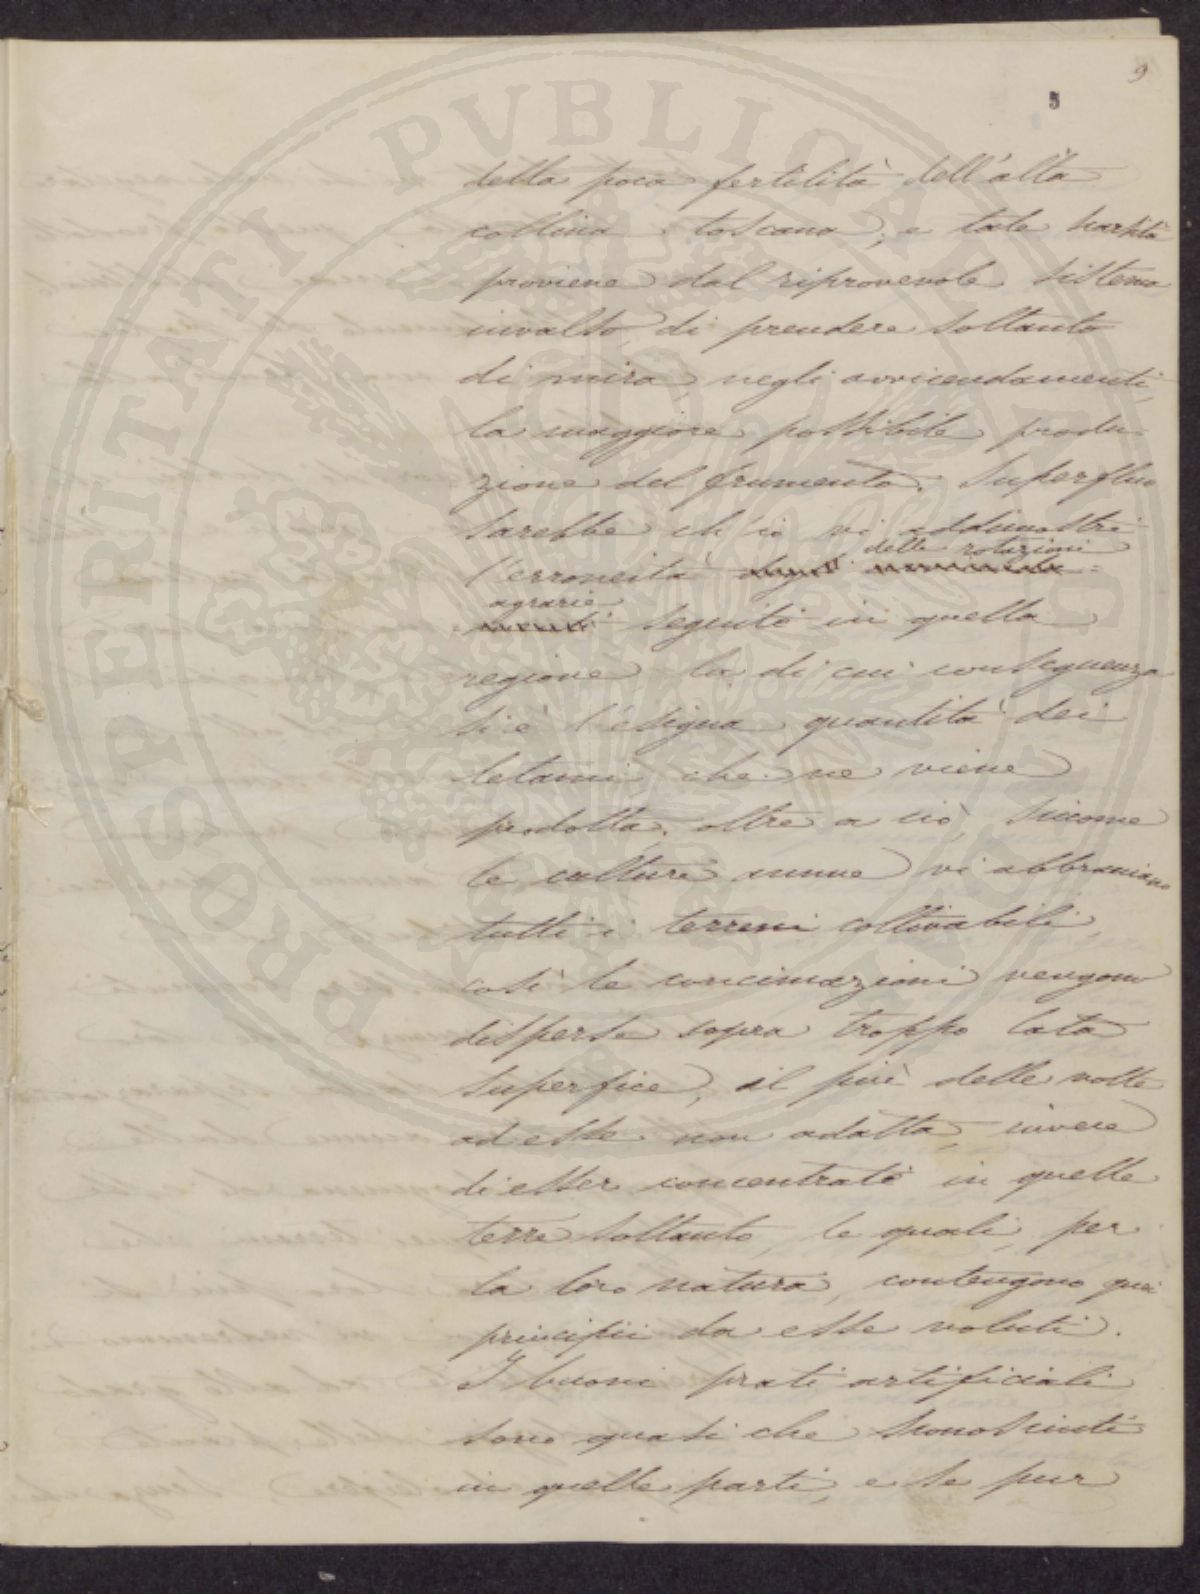 9
5
della poca fertilità dell'alta
collina toscana; e tale scarsità
proviene dal riprovevole sistema
invalso, di prendere soltanto
di mira, negli avvicendamenti,
la maggiore possibile produ-
zione del frumento. Superfluo
sarebbe ch'io vi addimostri
delle rotazioni
l'erroneità
agrarie
seguite in quella
regione la di cui conseguenza
si è l'esigua quantità dei
letami che ne viene
prodotta; oltre a ciò, siccome
le culture annue vi abbracciano
tutti i terreni coltivabili,
così le concimazioni vengono
disperse sopra troppo lata
superfice, il più delle volte
ad esse non adatta, invece
di esser concentrate in quelle
terre soltanto, le quali, per
la loro natura, contengono quei
principii da esse voluti.
I buoni prati artificiali
sono quasi che sconosciuti
in quelle parti, e se pur
PROSPERITATI PVBLICAE AVGENDAE